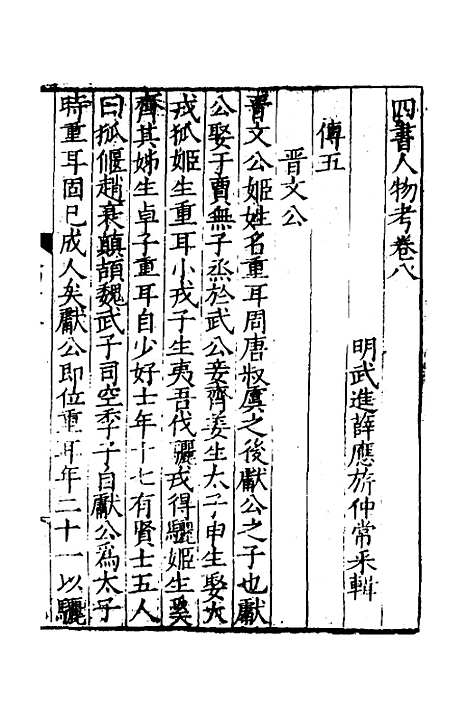 四書人物考卷八
明武進薛應旂仲常采輯
傳五
晋文公
晋文公姬姓名重耳周唐叔虞之後獻公之子也獻
公娶于賈無子烝於武公妾齊姜生太子申生娶大
戎狐姬生重耳小戎子生夷吾伐驪戎得驪姬生奚
齊其娣生卓子重耳自少好士年十七有賢士五人
曰狐偃趙衰顛頡魏武子司空季子自獻公爲太子
時重耳固已成人矣獻公即位重耳年二十一以驪